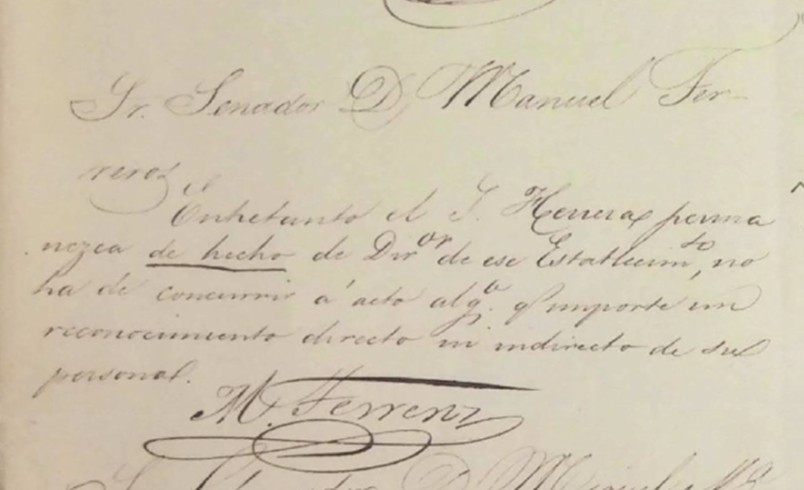 Sr. Senador D. Manuel Fer-
reros
Entretanto el S. Herrera perma
nezca de hecho de Dir.or de ese Establecim.to, no
ha de concurrir á acto alg.o q.e importe un
reconocimiento directo ni indirecto de su
personal.
M. Ferreros
Senador D. Miguel